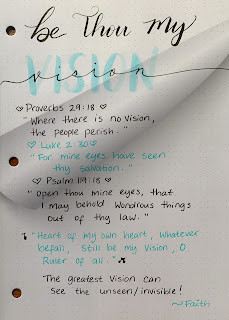 be Thou my
VISION
vision
♡ Proverbs 29:18 ♡
"Where there is no vision,
the people perish."
♡ Luke 2:30 ♡
"For mine eyes have seen
thy salvation."
♡ Psalm 119:18 ♡
"Open thou mine eyes, that
I may behold wondrous things
out of thy law."
"Heart of my own heart, whatever
befall, Still be my Vision, O
Ruler of all."
The greatest Vision can
See the unseen/invisible!
~Faith